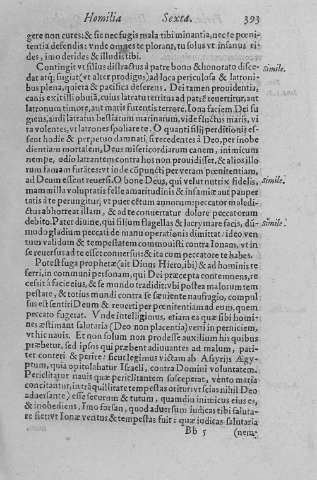 Homilia Sexta. 393
gere non cures: & sic nec fugis mala tibi minantia, nec te pœni-
tentia defendis: unde omnes te plorant, tu solus vt insanus ri-
des, imo derides & illudis tibi.
Contingit vt filius distractus à patre bono & honorato disce- simile.
dat atque fugiat (vt alter prodigus) ad loca periculosa & latroni-
bus plena, quieta & pacifica deferens. Dei tamen prouidentia,
canis ex illi obuiā, cuius latratu territus ad patrē reuertitur, aut
latronum timore, aut maris furentis terrore. Iona faciem Dei fu
giens, audi latratus bestiarum marinarum, vide fluctus maris, vi
ta volentes, vt latrones spoliare te. O quanti filij perditionis es-
sent hodie & perpetuo damnati, si recedentes à Deo, per inobe
dientiam mortalem, Deus misericordiarum canem, inimicum
nempe, odio latrantem contra hos non prouidisset, & alios illo-
rum famam furātes: vt inde cōpuncti per veram pœnitentiam,
ad Deum essent reuersi. O bone Deus, qui velut nutrix fidelis, simile.
mammilla voluptatis felle amaritudinis & infamiæ aut pauper
tatis à te perungitur, vt puer ectum annorum peccator maledi-
ctus abhorreat illam, & ad te conuertatur dolore peccatorum
debito. Pater diuine, qui filium flagellas & lacrymare facis, dū- simile.
modo gladium peccati de manu operationis dimittat: ideo ven-
tum validum & tempestatem commouisti contra Ionam, vt in
se reuersus ad te esset conuersus: & ita cum peccatore te habes.
Potest fuga prophetæ (ait Diuus Hiero, ibi) & ad hominis re
ferri, in communi personam, qui Dei præcepta contemnens, re
cessit à facie eius, & se mundo tradidit: vbi postea malorum tem
pestate, & totius mundi contra se sæuiente naufragio, compul
sus est sentiri Deum & reuerti per pœnitentiam ad eum, quem
peccato fugerat. Vnde intelligimus, etiam ea quæ sibi homi-
nes æstimant salutaria (Deo non placentia) verti in perniciem,
vt hic nauis. Et non solum non prodesse auxilium his quibus
præbetur, sed ipsos qui præbent adiuuantes ad malum, pari-
ter conteri & perire: sicut legimus victam ab Assyrijs Ægy-
ptum, quia opitulabatur Israeli, contra Domini voluntatem.
Periclitatur nauis quæ periclitantem susceperat, vento maria
concitantur, in trāquillitate tempestas oritur (vt scias nihil Deo
aduersante) esse securum & tutum, quamdiu inimicus eius es,
& inobediens. Imo forsan, quod aduersum iudicas tibi saluta-
re sit: vt Ionæ ventus & tempestas fuit: quæ iudicas salutaria
Bb 5 (nem-